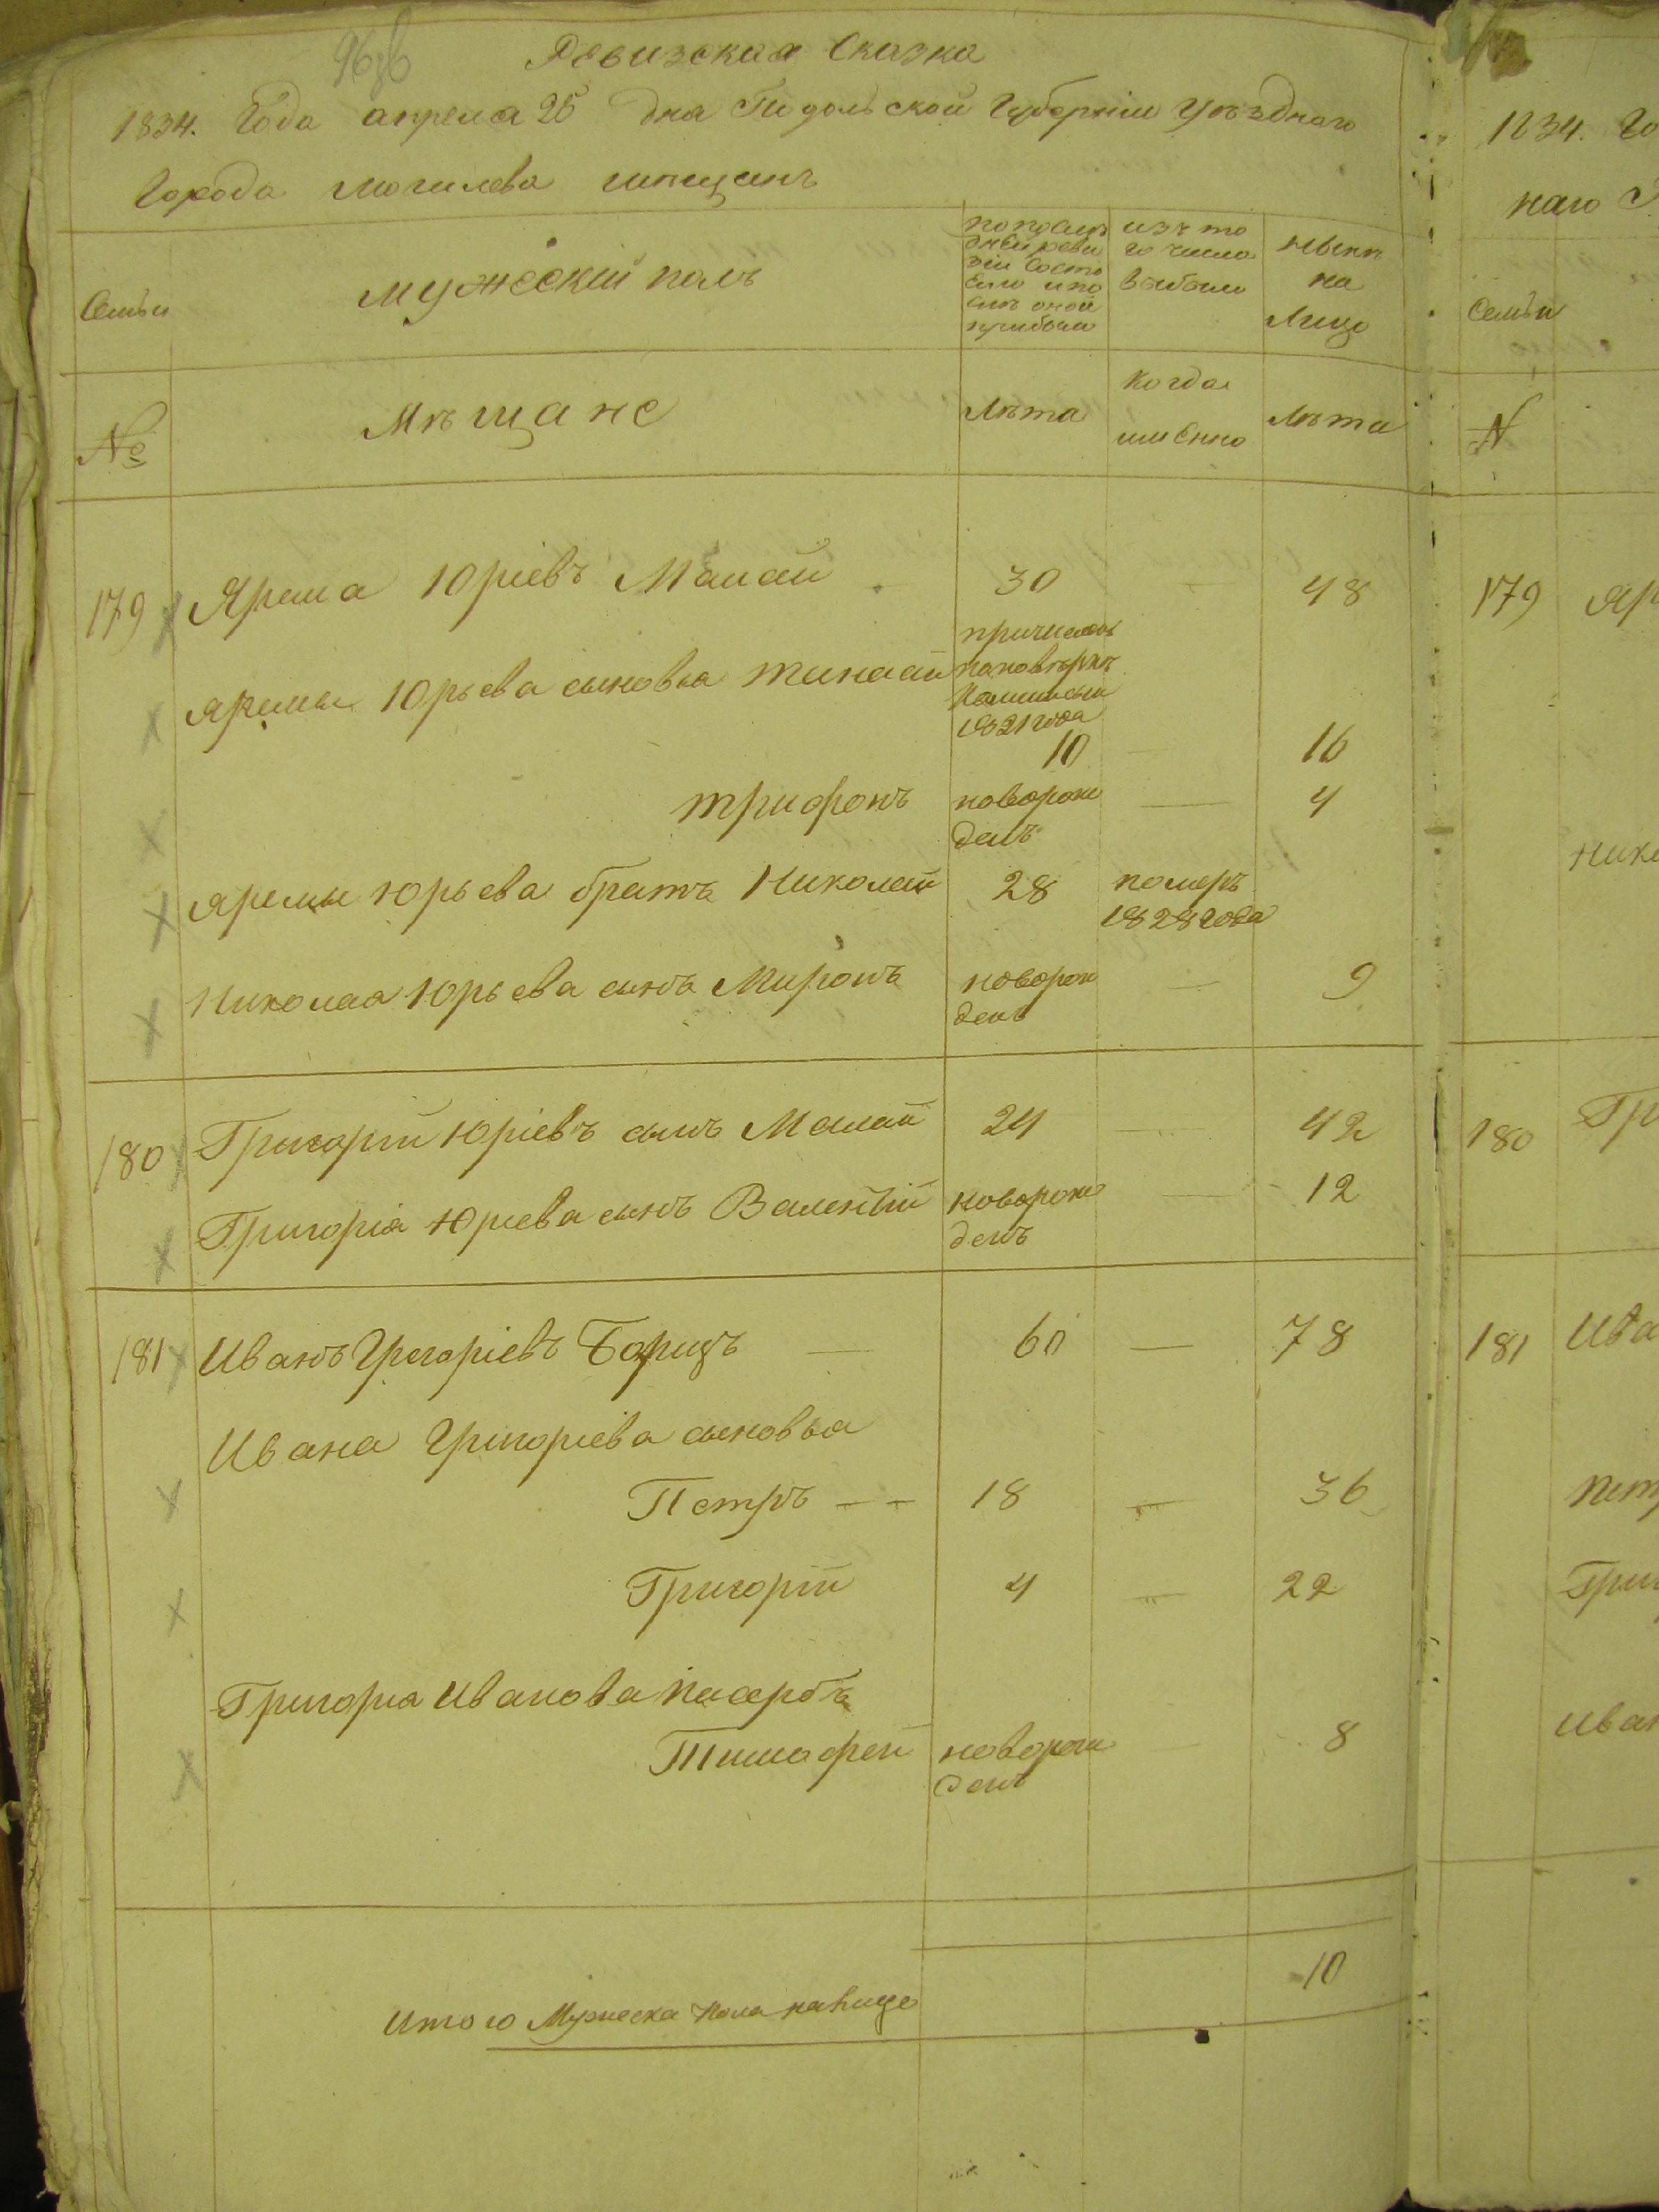 Ревизская Сказка
1834. Года апреля 25 дня Подольской Губерніи Уѣзднаго
Города Могилева мещанъ
Семьи
мужескій полъ
по послѣ
дней реви
зіи состо
яло и по
слѣ оной
прибыло
изъ то
го числа
выбыло
нынѣ
на
Лицо
№
Мѣщане
Лѣта
когда
имѣнно
Лѣта
179 Ярема Юріевъ Малай 30 — 48
Яремы Юрьева сыновья
причисленъ
1821 года
10 — 16
трифонъ новорож 4
денъ
Яремы Юрьева братъ Николай 28 померъ
1828 года
Николая Юрьева сынъ Миронъ новорож — 9
денъ
180 Григорій Юріевъ сынъ Малай 24 — 42
Григорія Юріева сынъ Валентій новорож — 12
денъ
181 Иванъ Григоріевъ Борщъ — 60 — 78
Ивана Григоріева сыновья
Петръ — — 18 — 36
Григорій 4 — 22
Григорія Иванова пасербъ
Тимофей новорож — 8
денъ
Итого Мужеска Пола налице 10
1834. Го
наго
Семьи
N
179 Яр
Нико
180 Гр
181 Ива
Петр
Григ
Иван